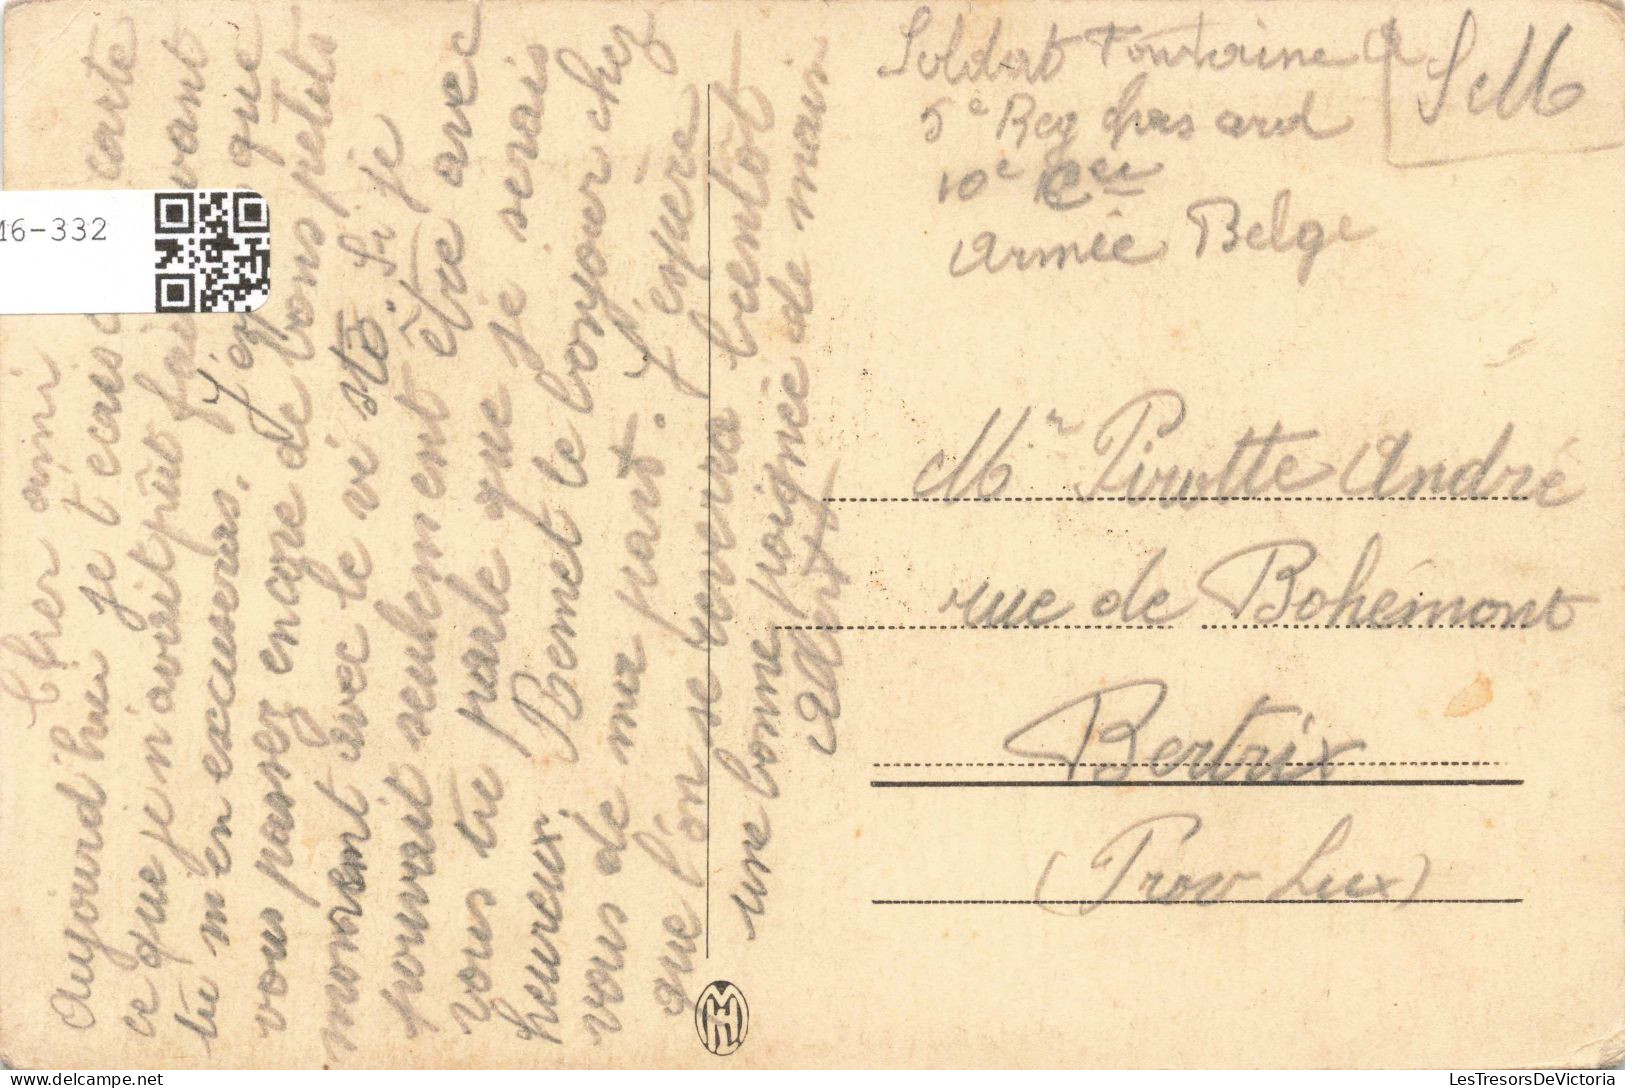 Cher ami
Aujourd'hui je t'ecris carte
ce que je n'avait pût fai avant
tu m'en excuseras. J'es que
vous passez encore de bons petits
moment avec le vi sto. Si je
pouvait seulement être avec
vous tu parle que je serais
heureux. Remet le bonjour chez
vous de ma part. J'espère
que l'on se revera bientôt
une bonne poignée de main
Soldat Fontaine A
5e Reg chas ard
10e Cie
Armée Belge
SM
Mr Pirotte André
rue de Bohémont
Bertrix
(Prov Lux)
16-332
LesTresorsDeVictoria